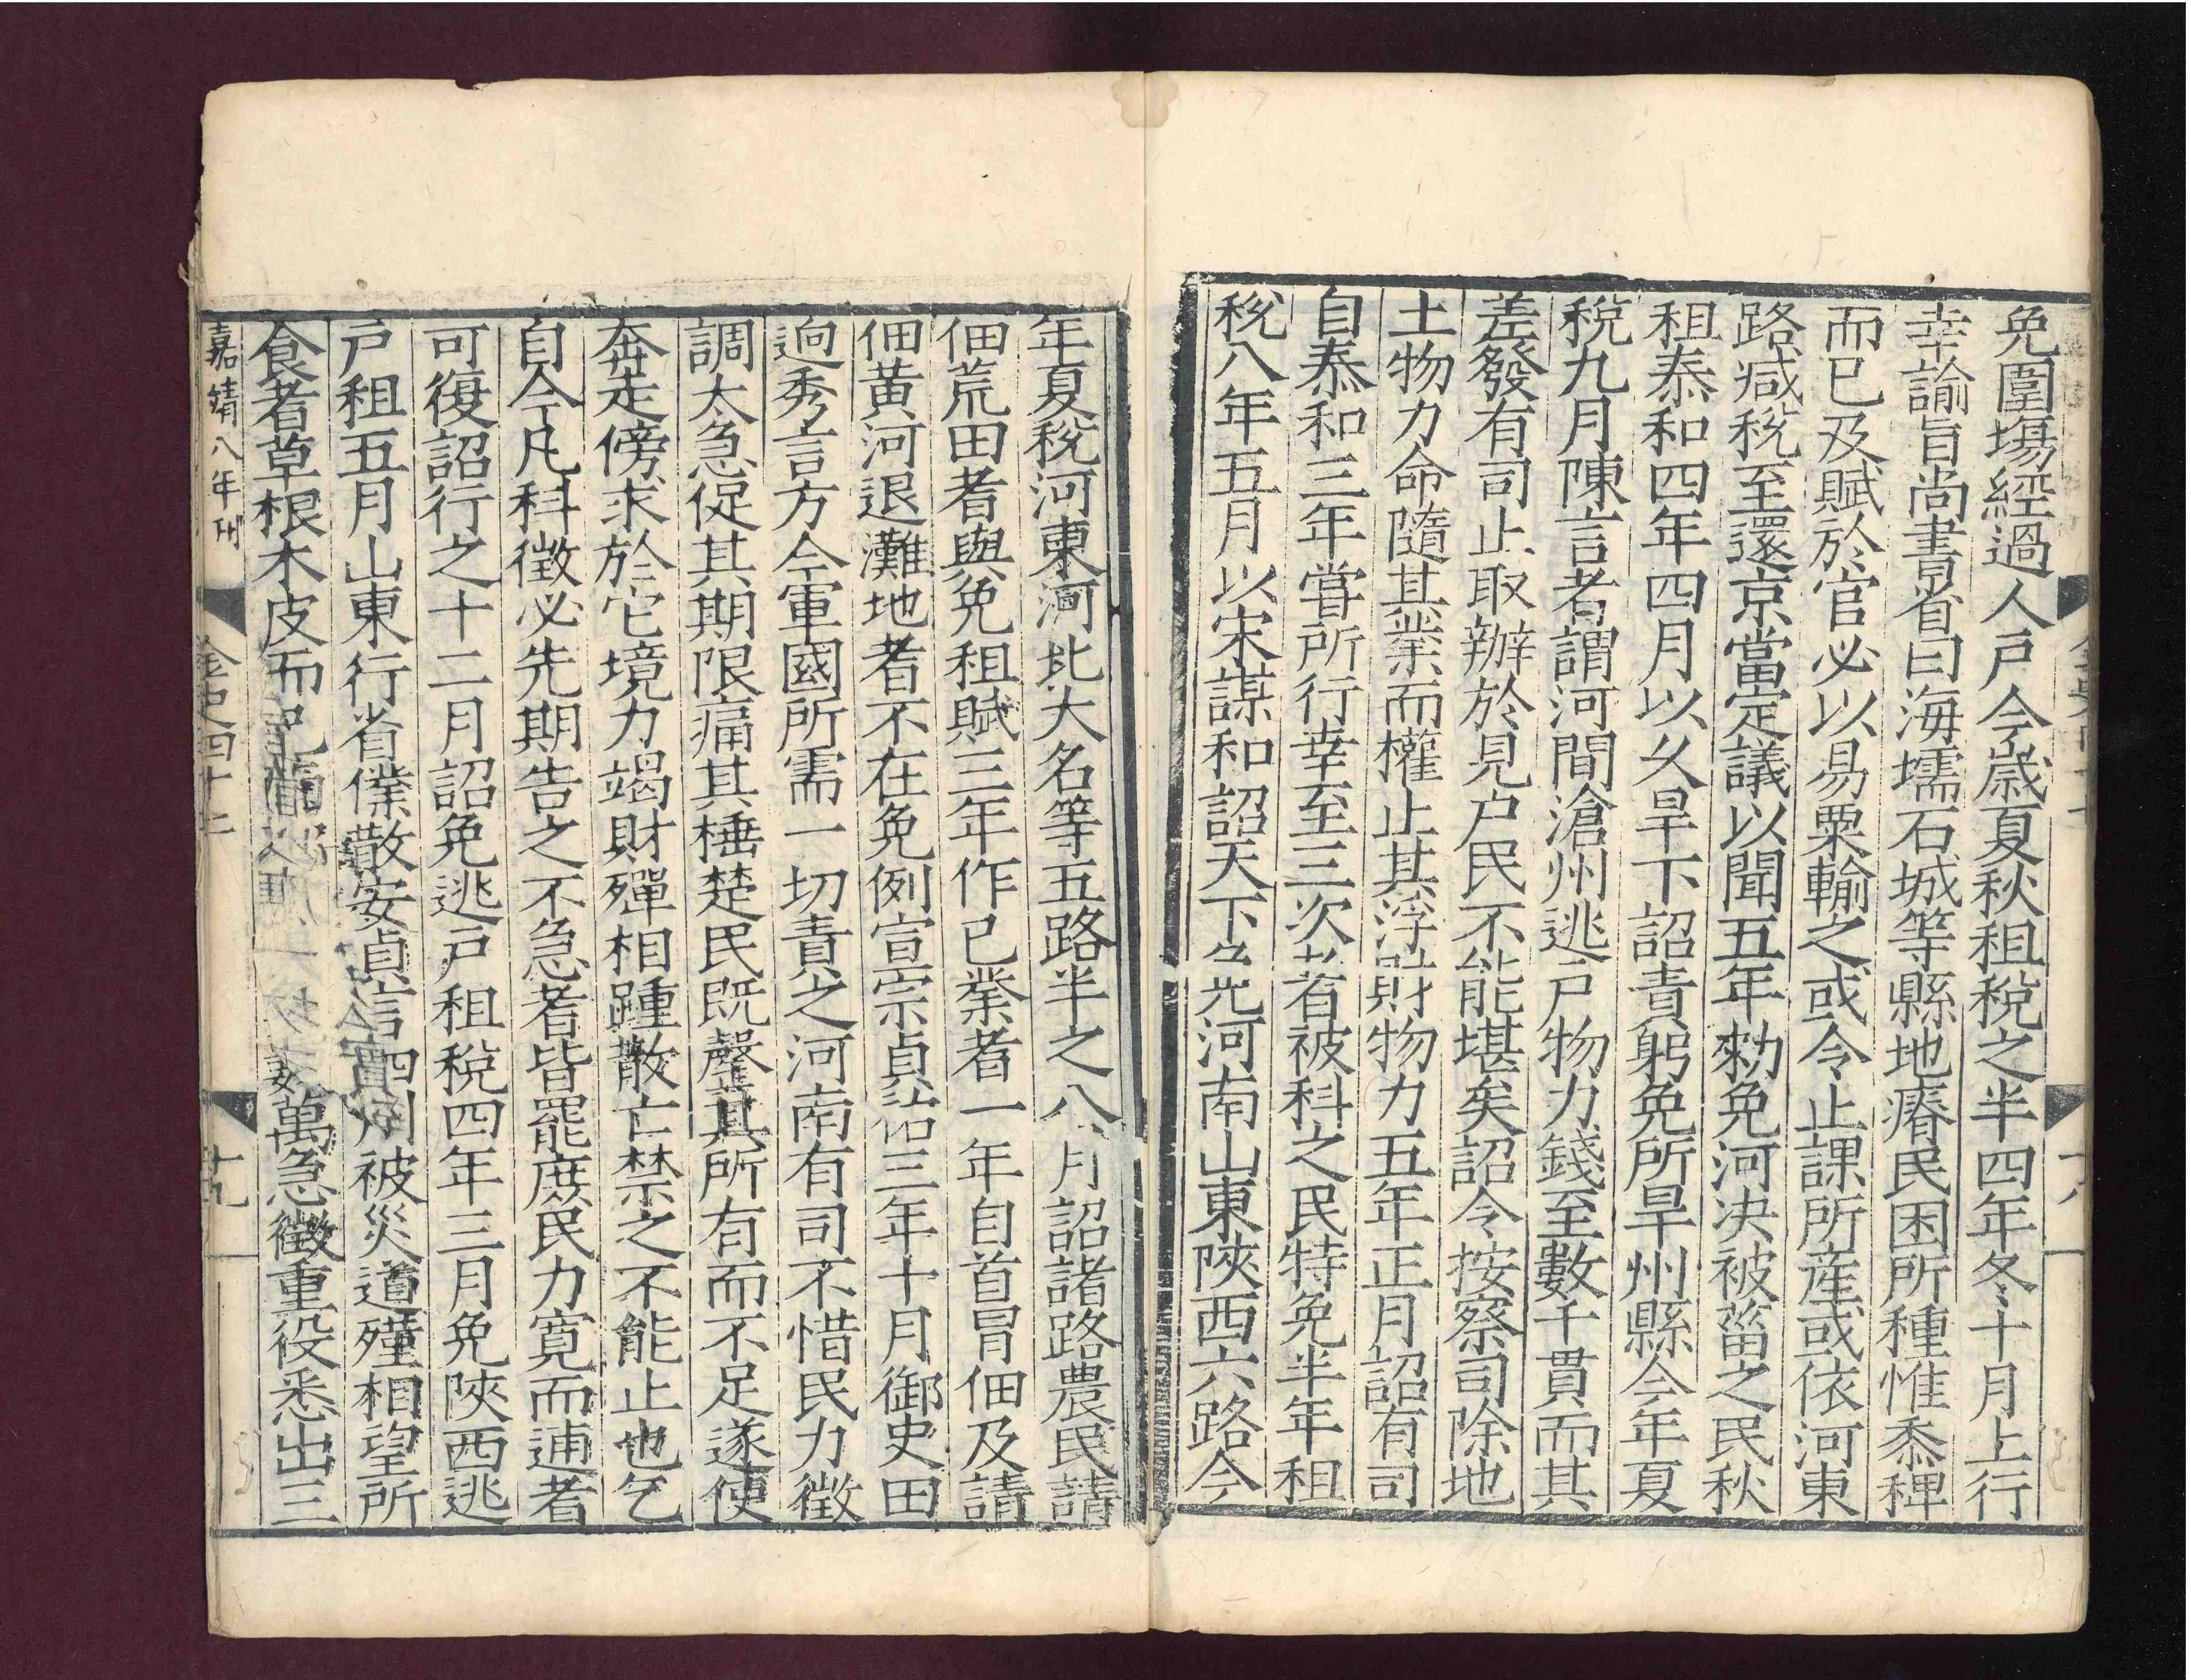 免圍場經過人戶今歲夏秋租稅之半四年冬十月上行
幸諭旨尚書省曰海壖石城等縣地瘠民困所種惟黍稗
而已及賦於官必以易粟輸之或令止課所産或依河東
路減稅至還京當定議以聞五年勑免河決被菑之民秋
租泰和四年四月以久旱下詔責躬免所旱州縣今年夏
稅九月陳言者謂河間滄州逃戶物力錢至數千貫而其
差發有司止取辦於見户民不能堪矣詔令按察司除地
土物力命隨其業而權止其浮財物力五年正月詔有司
自泰和三年嘗所行幸至三次者被科之民特免半年租
稅八年五月以宋謀和詔天下免河南山東陝西六路今
年夏稅河東河北大名等五路半之八月詔諸路農民請
佃荒田者與免租賦三年作已業者一年自首冒佃及請
佃黃河退灘地者不在免例宣宗貞祐三年十月御史田
逈秀言方今軍國所需一切責之河南有司不惜民力徵
調太急促其期限痛其棰楚民既罄其所有而不足遂使
奔走傍求於它境力竭財殫相踵散亡禁之不能止也乞
自今凡科徵必先期告之不急者皆罷庶民力寬而逋者
可復詔行之十二月詔免逃戶租稅四年三月免陝西逃
戶租五月山東行省僕散安貞言泗州被災道殣相望所
食者草根木皮而已 萬急徵重役悉出三
嘉靖八年刊
金史四十七
十九